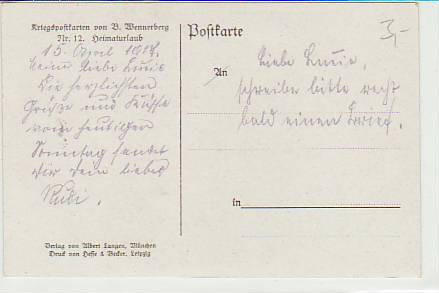 Kriegspostkarten von B. Wennerberg
Nr. 12. Heimaturlaub
15. April 1917.
Meine liebe Luise
Die herzlichsten
Grüße und Küsse
vom heutigen
Sonntag sendet
Dir Dein lieber
Rudi.
Verlag von Albert Langen, München
Druck von Hesse & Becker, Leipzig
Postkarte
3,-
An
Liebe Luise,
schreibe bitte recht
bald einen Brief.
in